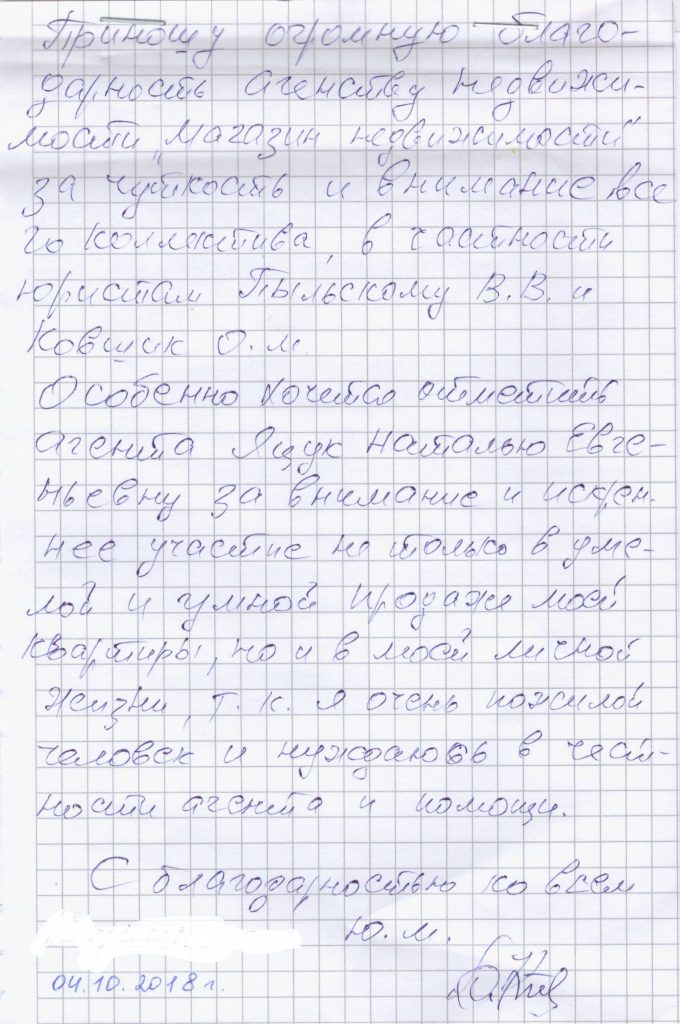 Приношу огромную благо-
дарность агенству недвижи-
мости „Магазин недвижимости"
за чуткость и внимание все
го коллектива, в частности
юристам Пыльскому В.В. и
Ковшик О.М.
Особенно хочется отметить
агента Ящук Наталью Евге-
ньевну за внимание и искрен-
нее участие не только в уме-
лой и умной продаже моей
квартиры, но и в моей личной
жизни, т.к. я очень пожилой
человек и нуждаюсь в чест-
ности агента и помощи.
С благодарностью ко всем
Ю.М.
04.10.2018 г.